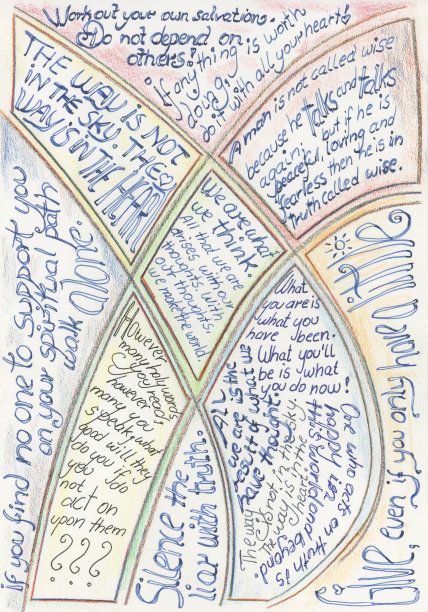 Work out your own salvation.
Do not depend on
others!
If anything is worth
doing
do it with all your heart!
THE WAY IS NOT
IN THE SKY. THE
WAY IS IN THE HEART
A man is not called wise
because he talks and talks
again; but if he is
peaceful, loving and
fearless then he is in
truth called wise.
We are what
we think.
All that we are
arises with our
thoughts. With
our thoughts,
we make the world.
if you find no one to support you
on your spiritual path
walk alone.
However
many holy words
you read,
however
many you
speak, what
good will they
do you if do
you
not
act on
upon them
???
Silence the
liar with truth.
ALL
we are is the
result of what we
have thought.
The way
is not in the sky
The way is in the
heart.
What
you are is
what you
have been.
What you'll
be is what
you do now!
One who acts on truth is
happy in
this world and beyond
Give, even if you only have a little